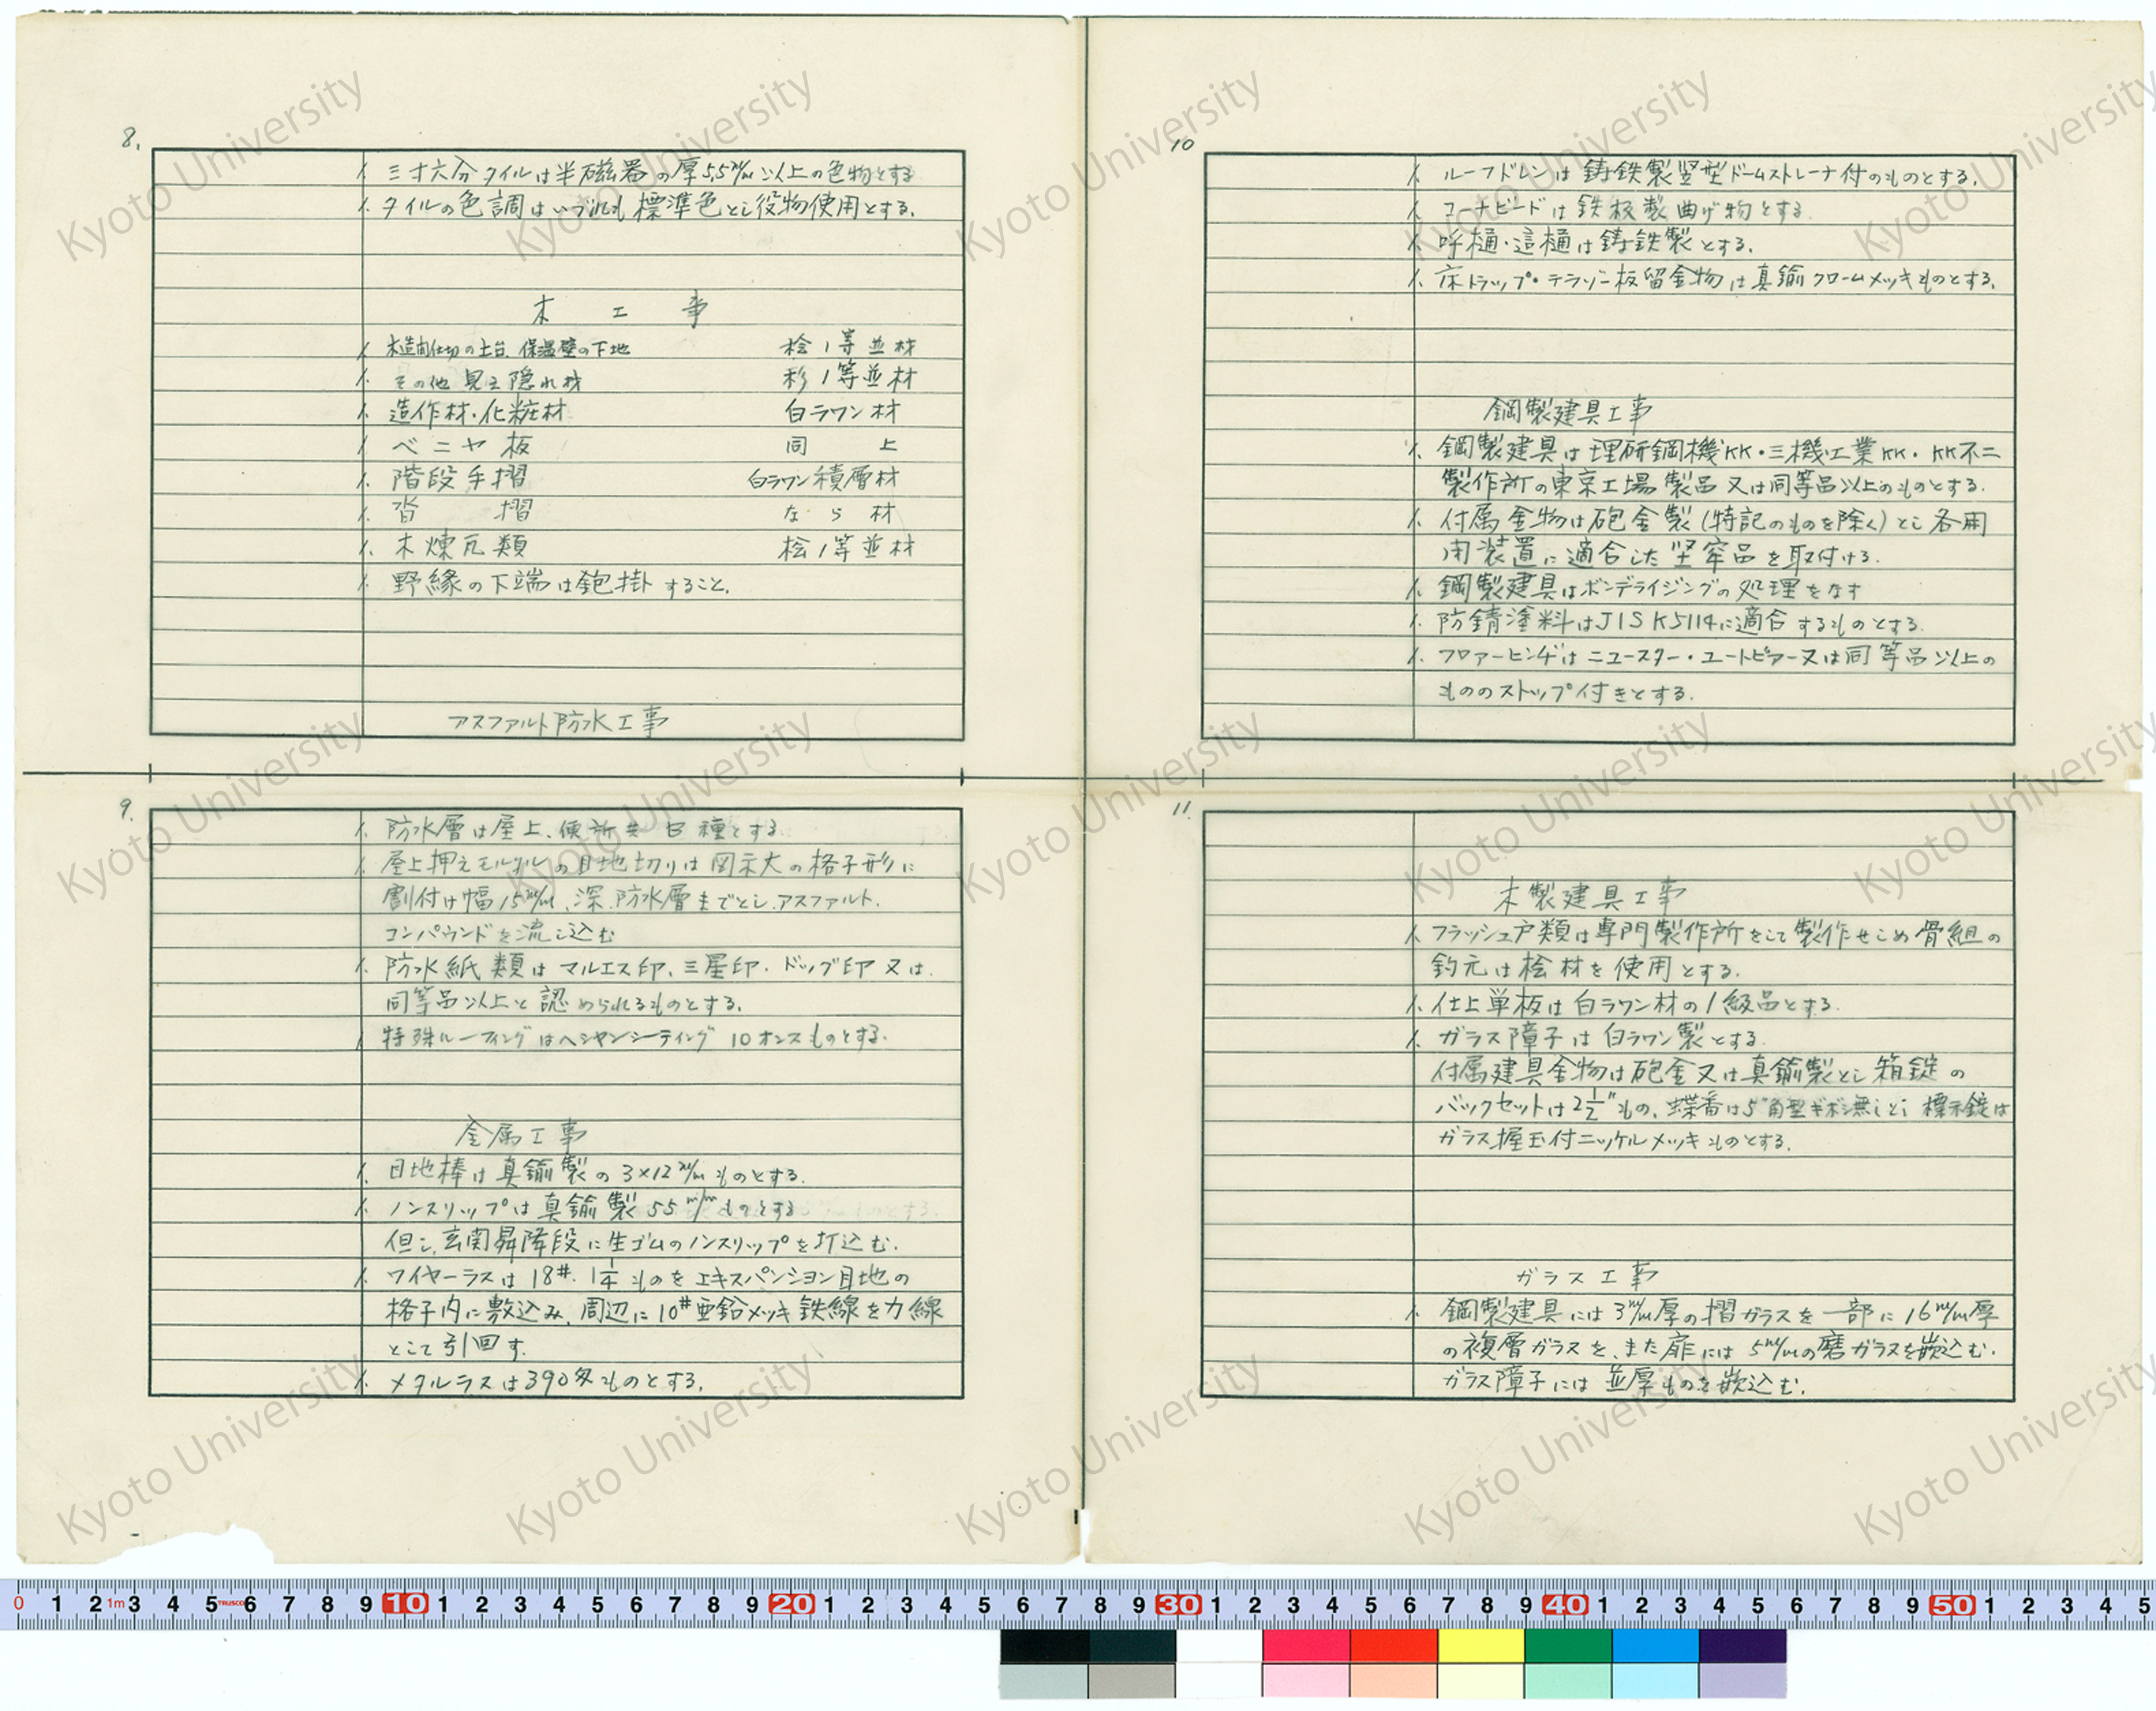 8.
1. 三寸六分タイルは半磁器の厚5.5m/m以上の色物とする
1. タイルの色調はいづれも標準色とし役物使用とする。
木工事
1. 木造間仕切の土台、保温壁の下地 桧1等並材
1. その他見え隠れ材 杉1等並材
1. 造作材・化粧材 白ラワン材
1. ベニヤ板 同上
1. 階段手摺 白ラワン積層材
1. 沓摺 なら材
1. 木煉瓦類 桧1等並材
1. 野縁の下端は鉋掛すること。
アスファルト防水工事
9.
1. 防水層は屋上、便所共B種とする
1. 屋上押えモルタルの目地切りは図示大の格子形に
割付け幅15m/m、深、防水層までとし、アスファルト.
コンパウンドを流し込む
1. 防水紙類はマルエス印、三星印・ドッグ印又は.
同等品以上と認められるものとする。
1. 特殊ルーフィングはヘシヤンシーティング10オンスものとする.
金属工事
1. 目地棒は真鍮製の3×12m/mものとする.
1. ノンスリップは真鍮製55m/mものとする
但し、玄関昇降段に生ゴムのノンスリップを打込む.
1. ワイヤーラスは18#. 1 1/4ものをエキスパンション目地の
格子内に敷込み、周辺に10#亜鉛メッキ鉄線を力線
として引回す.
1. メタルラスは390匁ものとする.
10
1. ルーフドレンは鋳鉄製竪型ドームストレーナ付のものとする.
1. コーナビードは鉄板製曲げ物とする
1. 呼樋・這樋は鋳鉄製とする.
1. 床トラップ・テラゾー板留金物は真鍮クロームメッキものとする.
鋼製建具工事
1. 鋼製建具は理研鋼機KK・三機工業KK・KK不二
製作所の東京工場製品又は同等品以上のものとする.
1. 付属金物は砲金製(特記のものを除く)とし各開
閉装置に適合した堅牢品を取付ける.
1. 鋼製建具はボンデライジングの処理をなす
1. 防錆塗料はJIS K5114に適合するものとする.
1. フロアーヒンヂはニュースター・ユートピアー又は同等品以上の
もののストップ付きとする.
11.
木製建具工事
1. フラッシュ戸類は専門製作所をして製作せしめ骨組の
釣元は桧材を使用とする.
1. 仕上単板は白ラワン材の1級品とする.
1. ガラス障子は白ラワン製とする.
付属建具金物は砲金又は真鍮製とし箱錠の
バックセットは2 1/2"もの、蝶番は5"角型ギボシ無しとし標示錠は
ガラス握玉付ニッケルメッキものとする.
ガラス工事
1. 鋼製建具には3m/m厚の摺ガラスを一部に16m/m厚
の複層ガラスを、また扉には5m/mの磨ガラスを嵌込む.
ガラス障子には並厚ものを嵌込む.